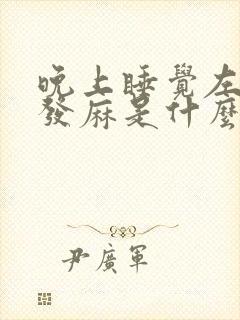 晚上睡覺左
發麻是什麼
尹廣軍